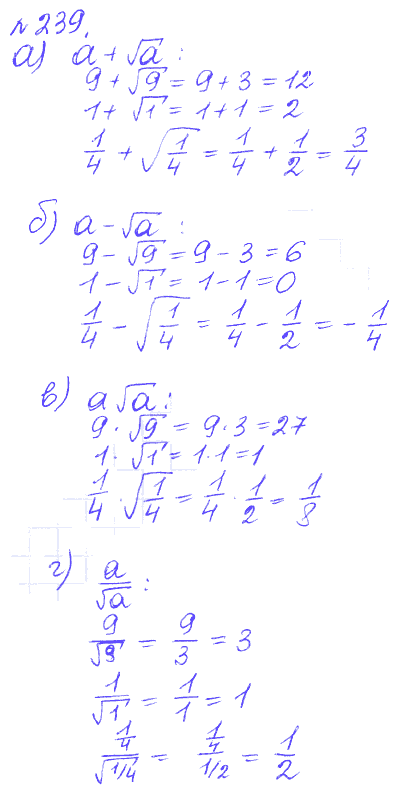 №239.
а) a + √a :
9 + √9 = 9 + 3 = 12
1 + √1 = 1 + 1 = 2
1/4 + √(1/4) = 1/4 + 1/2 = 3/4
б) a - √a :
9 - √9 = 9 - 3 = 6
1 - √1 = 1 - 1 = 0
1/4 - √(1/4) = 1/4 - 1/2 = - 1/4
в) a √a :
9 · √9 = 9 · 3 = 27
1 · √1 = 1 · 1 = 1
1/4 · √(1/4) = 1/4 · 1/2 = 1/8
г) a/√a :
9/√9 = 9/3 = 3
1/√1 = 1/1 = 1
(1/4)/√(1/4) = (1/4)/(1/2) = 1/2